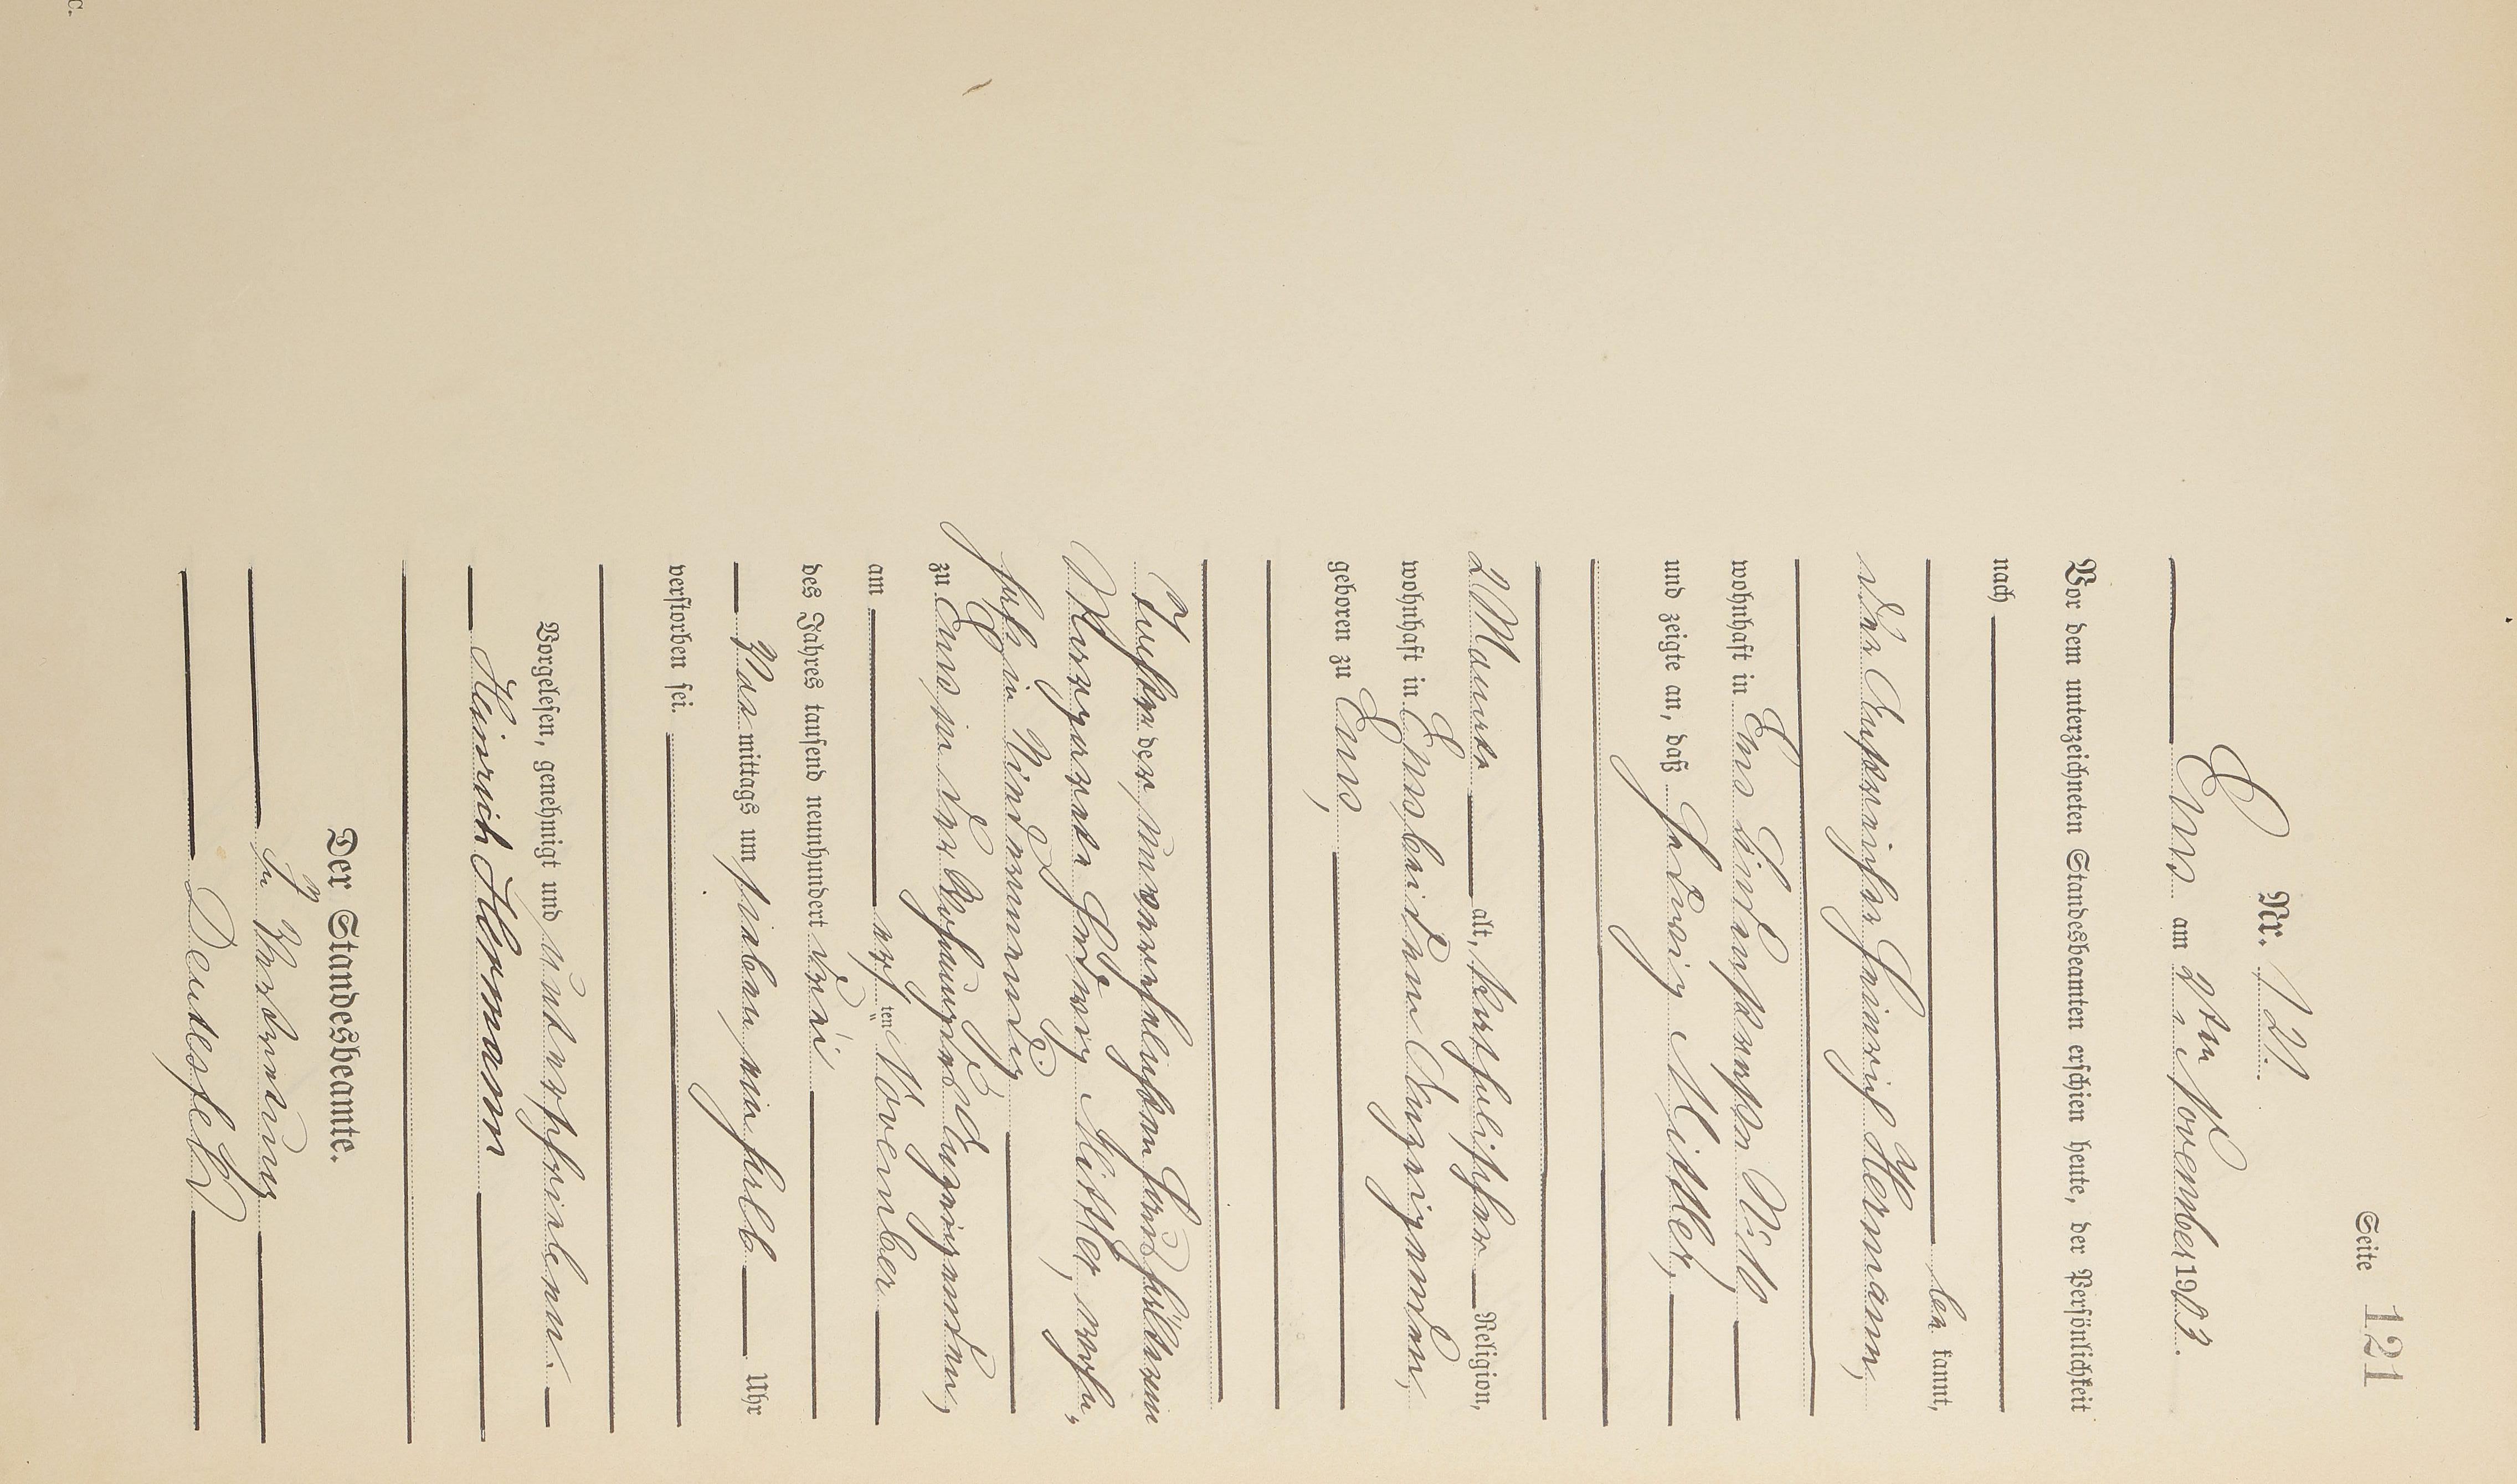 C.
Seite 121
Nr. 121.
Ems am 2ten November 1903.
Vor dem unterzeichneten Standesbeamten erschien heute, der Persönlichkeit
nach
be kannt,
der Anstreicher Heinrich Hermann,
wohnhaft in Ems Lindenstraße
und zeigte an, daß Hedwig Mistler,
2 Monate alt, katholischer Religion,
wohnhaft in Ems bei dem Anzeigenden,
geboren zu Ems,
Tochter der unverehelichten
Margareta Hedwig Mistler, wohn¬
haft in
zu Ems in der Wohnung des Anzeigenden,
am ersten November
des Jahres tausend neunhundert drei
Vor mittags um sieben ein halb Uhr
verstorben sei.
Vorgelesen, genehmigt und unterschrieben.
Heinrich Hermann
Der Standesbeamte.
In Vertretung